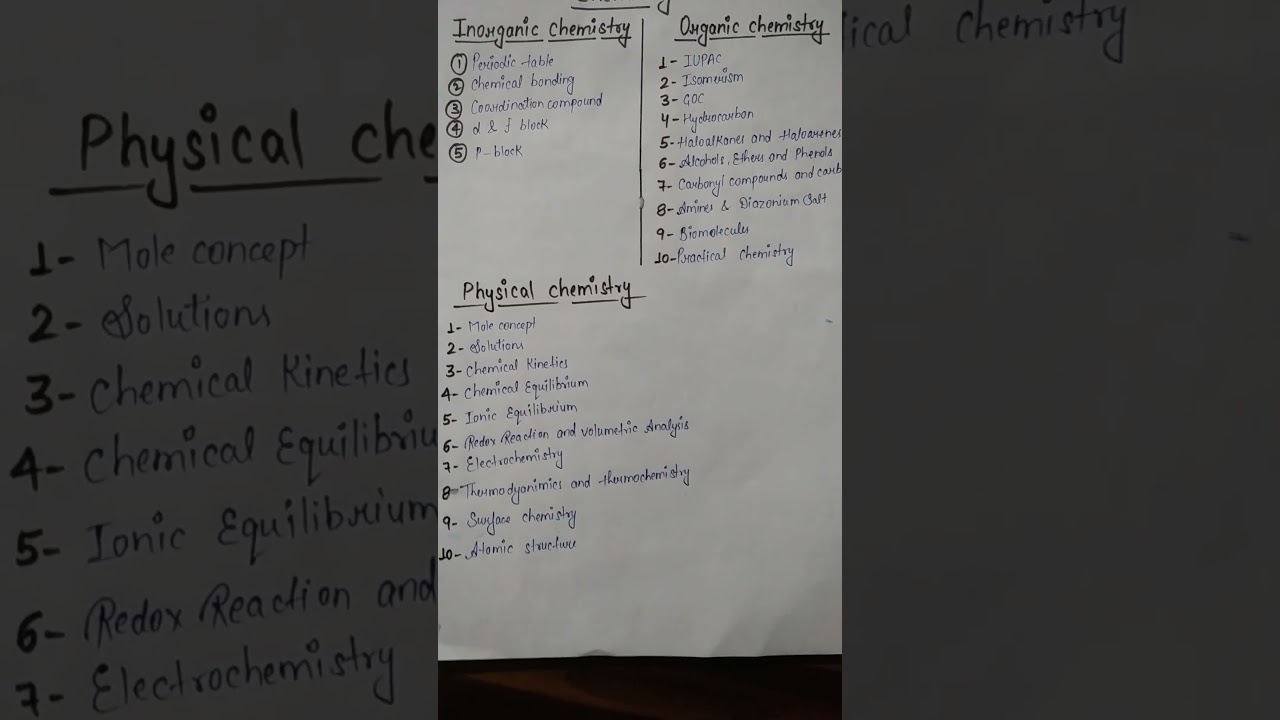 Inorganic chemistry
① Periodic table
② Chemical bonding
③ Coordination compound
④ d & f block
⑤ P-block
Organic chemistry
1- IUPAC
2- Isomerism
3- GOC
4- Hydrocarbon
5- Haloalkanes and Haloarenes
6- Alcohols, Ethers and Phenols
7- Carbonyl compounds and carb
8- Amines & Diazonium Salt
9- Biomolecules
10- Practical chemistry
Physical chemistry
1- Mole concept
2- Solutions
3- Chemical Kinetics
4- Chemical Equilibrium
5- Ionic Equilibrium
6- Redox Reaction and volumetric Analysis
7- Electrochemistry
8- Thermodyanimics and thermochemistry
9- Surface chemistry
10- Atomic structure
Physical che
1- Mole concept
2- Solutions
3- Chemical Kinetics
4- Chemical Equilibriu
5- Ionic Equilibrium
6- Redox Reaction and
7- Electrochemistry
ical chemistry